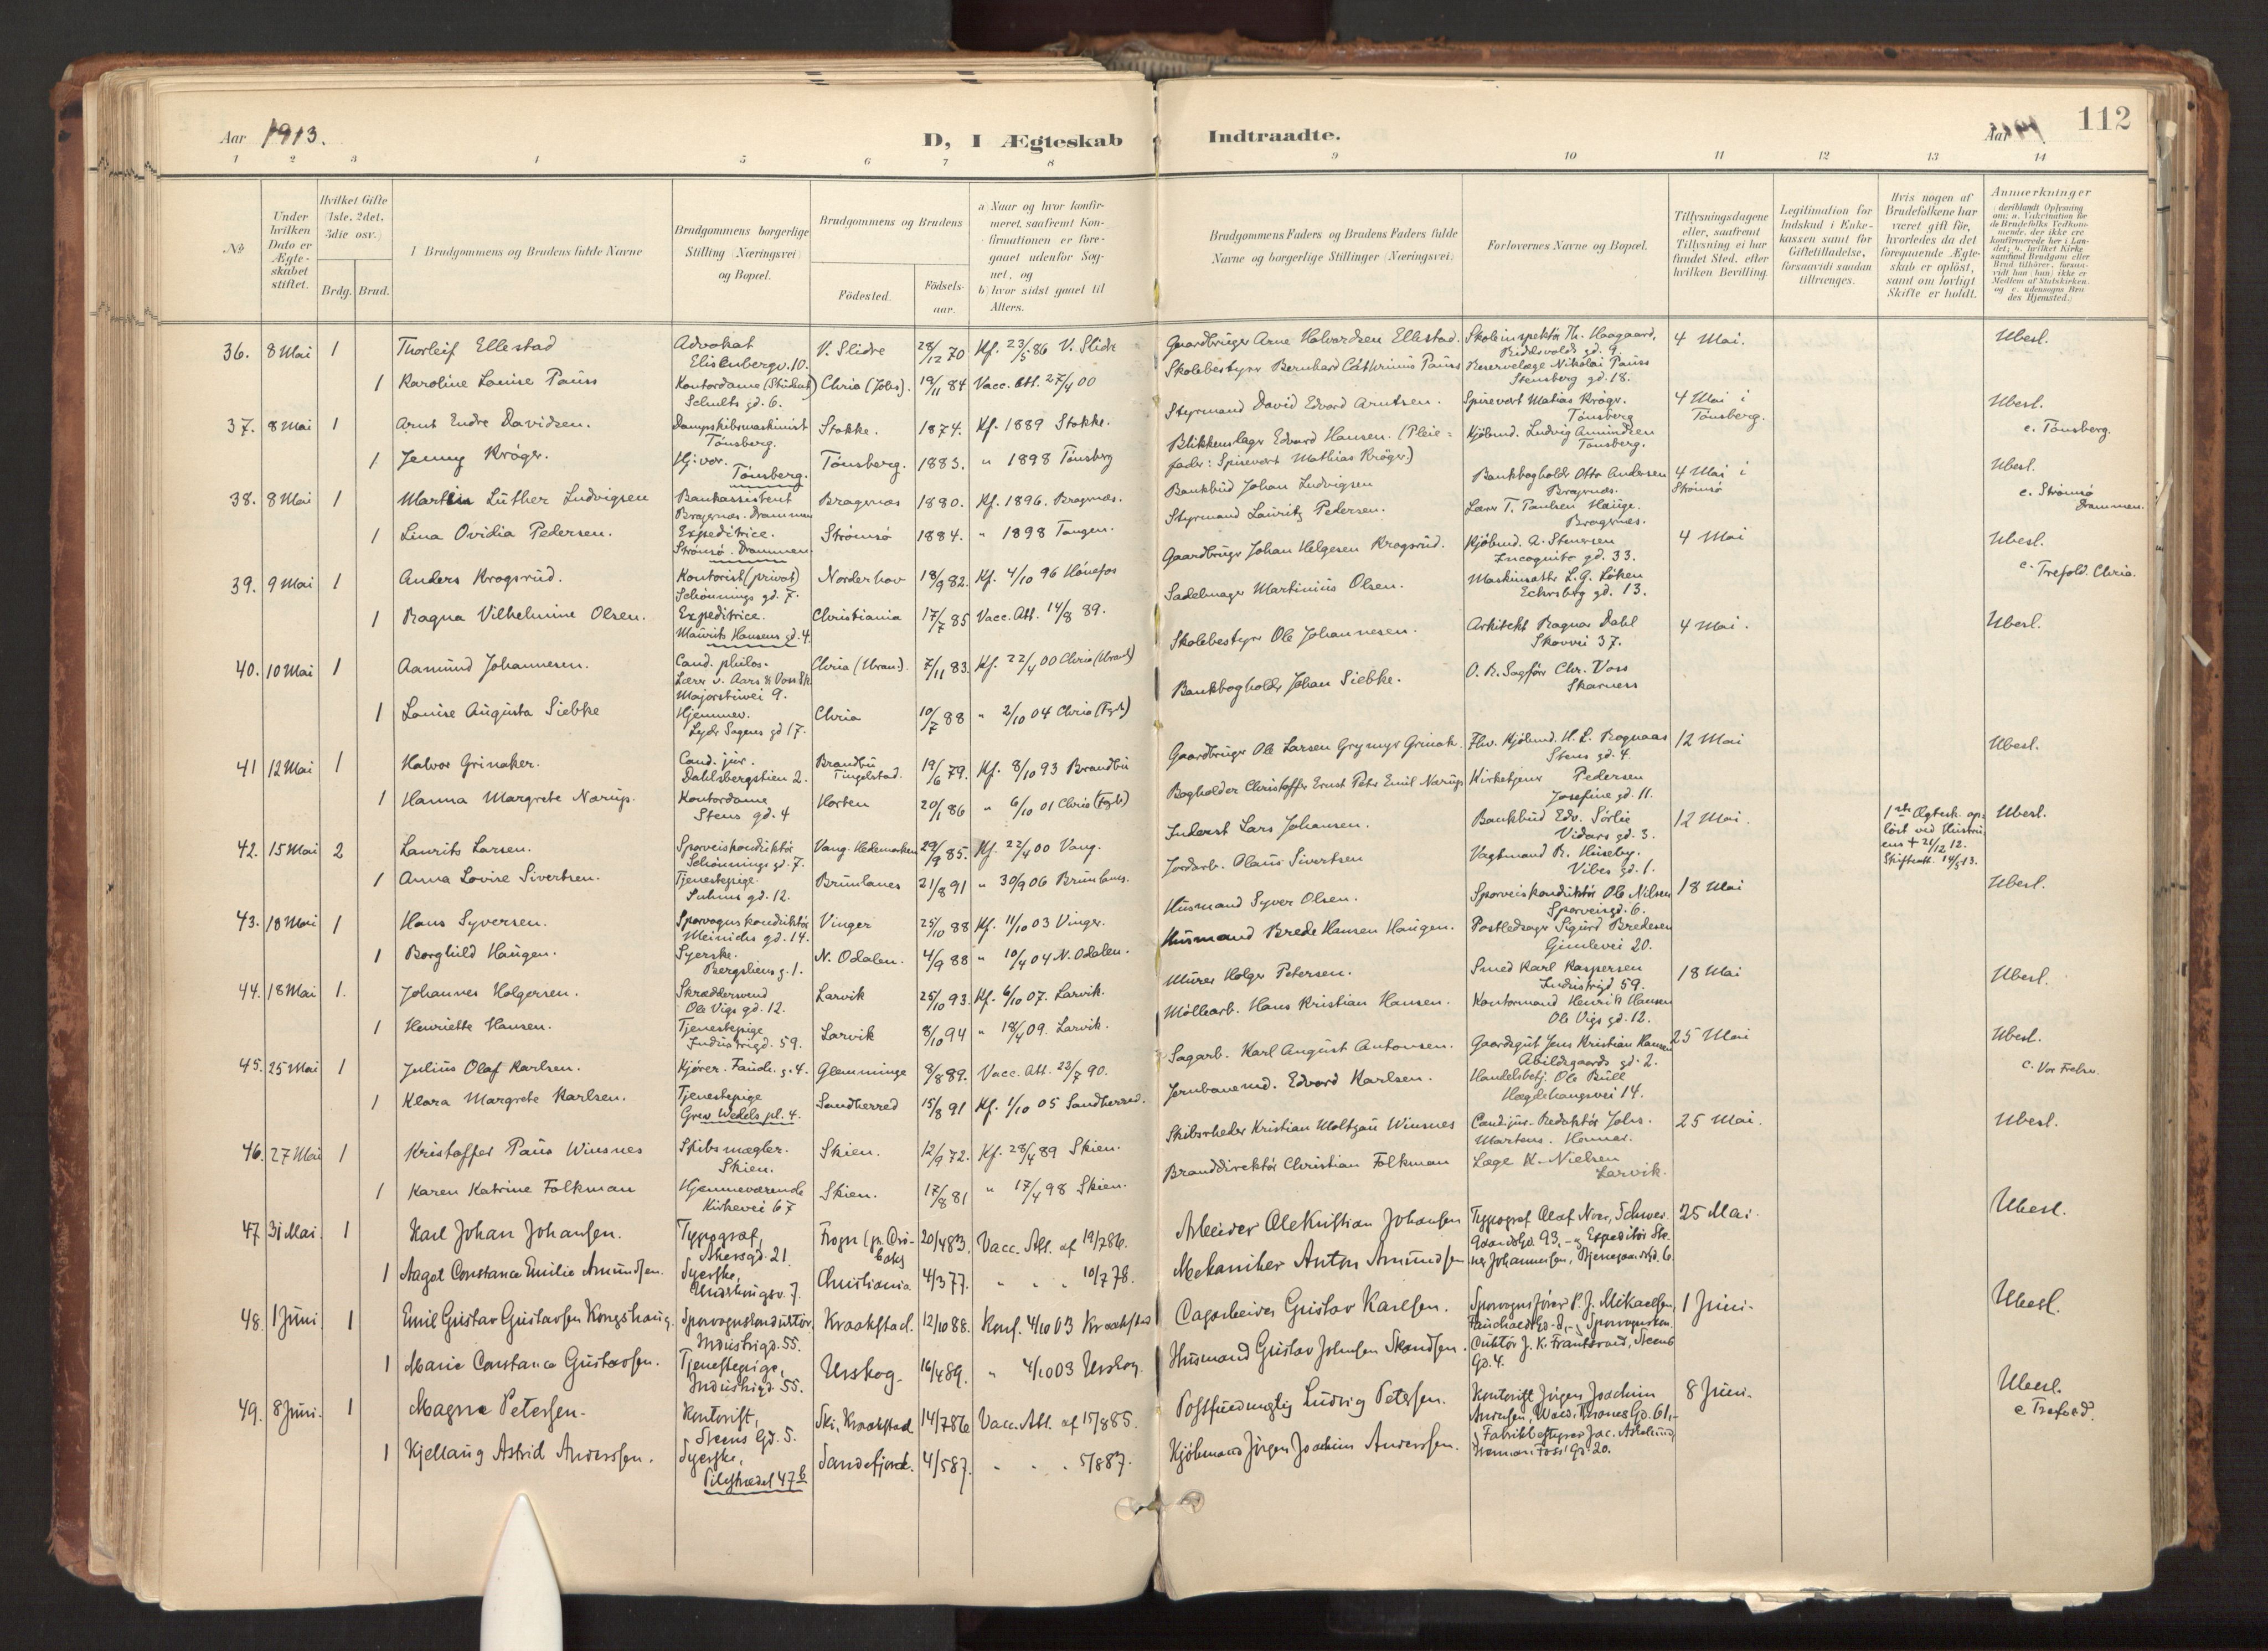 112
Aar 1913.
D, I Ægteskab Indtraadte.
Aar
1 2 3 4 5 6 7 8 9 10 11 12 13 14
No
Under hvilken Dato er Ægte-skabet stiftet.
Hvilket Gifte (1ste, 2det, 3die osv.)
Brdg. Brud.
I Brudgommens og Brudens fulde Navne
Brudgommens borgerlige Stilling (Næringsvei) og Bopæl.
Brudgommens og Brudens
Födested.
Födsels-aar.
a) Naar og hvor konfir-meret, saafremt Kon-firmationen er fore-gaaet udenfor Sog-net, og
b) hvor sidst gaaet til Alters.
Brudgommens Faders og Brudens Faders fulde Navne og borgerlige Stillinger (Næringsvei)
Forlovernes Navne og Bopæl.
Tillysningsdagene eller, saafremt Tillysning ei har fundet Sted, efter hvilken Bevilling.
Legitimation for Indskud i Enke-kassen samt for Giftetilladelse, forsaavidt saadan tiltrænges.
Hvis nogen af Brudefolkene har været gift för, hvorledes da det foregaaende Ægte-skab er oplöst, samt om lovligt Skifte er holdt.
Anmærkninger
36. 8 Mai 1 Thorleif Ellestad Advokat Elisenbergv. 10. V. Slidre 28/12 70 Kf. 23/5 86 V. Slidr Gaardbruger Arne Halvordsen Ellestad. Skoleinspektör Th. Haagaard, Riddervolds gd. 9. 4 Mai. Ubesl.
1 Karoline Louise Pauss Kontordame (Student) Schults gd. 6. Chria (Johs). 19/11 84 Vacc. Att. 27/4 00 Skolebestyrer Bernhard Cathrinus Pauss Reservelæge Nikolai Pauss Stensberg gd. 18.
37. 8 Mai 1 Arnt Endre Davidsen. Dampskibsmaskinist Tönsberg. Stokke. 1874. Kf. 1889 Stokke. Styrmand David Edvard Arntsen. Spisevert Matias Kröger. Tönsberg 4 Mai i Tönsberg. Ubesl.
1 Jenny Kröger. Hj.vær. Tönsberg. Tönsberg. 1883. " 1898 Tönsberg Blikkenslager Edvard Hansen. (Pleie= fader: Spisevert Mathias Kröger.) Kjöbmd. Ludvig Amundsen Tönsberg. c. Tönsberg.
38. 8 Mai 1 Martin Luther Ludvigsen Bankassistent Bragernæs. Drammen Bragernæs 1880. Kf. 1896. Bragernæs. Bankbud Johan Ludvigsen Bankbogholder Otto Andersen Bragernæs. 4 Mai i Strömsö Ubesl.
1 Lina Ovidia Pedersen. Expeditrice. Strömsö. Drammen. Strömsö 1884. " 1898 Tangen. Styrmand Lauritz Pedersen. Lærer T. Paulsen Hauge. Bragernes. c. Strömsö Drammen.
39. 9 Mai 1 Anders Krogsrud. Kontorist (privat) Schönnings gd. 7. Norderhov 18/9 82. Kf. 4/10 96 Hönefos Gaardbruger Johan Helgesen Krogsrud. Kjöbmd. A. Stenersen Incognito gd. 33. 4 Mai Ubesl.
1 Ragna Vilhelmine Olsen. Expeditrice. Maurits Hansens gd. 4. Christiania 17/7 85 Vacc. Att. 14/8 89. Sadelmager Martinius Olsen. L. G. Löken Eckersberg gd. 13. c. Trefold. Chria.
40. 10 Mai 1 Aamund Johannesen. Cand. philos. Lærer v. Aars & Voss Sk. Majorstuvei 9. Chria (Uran.). 7/11 83. Kf. 22/4 00 Chria (Uran.) Skolebestyrer Ole Johannesen. Arkitekt Ragnar Dahl Skovvei 37. 4 Mai. Ubesl.
1 Louise Augusta Siebke Hjemmev. Lyder Sagens gd 17. Chria 10/7 88 " 2/10 04 Chria (Fgb) Bankbogholder Johan Siebke. O. R. Sagförer Chr. Voss Skarnes
41 12 Mai 1 Halvor Grinaker. Cand. jur. Dahlsbergstien 2. Brandbu Tingelstad. 19/6 79. Kf. 8/10 93 Brandbu Gaardbruger Ole Larsen Grymyr Grinak. Fhv. Kjöbmd. H. L. Rognaas Stens gd. 4. 12 Mai Ubesl.
1 Hanna Margrete Narup. Kontordame Stens gd. 4 Horten 20/1 86 " 6/10 01 Chria (Fgb) Bogholder Christoffer Ernst Peter Emil Narup Kirketjener Pedersen Josefine gd. 11.
42. 15 Mai 2 Laurits Larsen. Sporveiskonduktör Schönnings gd. 7. Vang. Hedemarken 29/9 85. Kf. 22/4 00 Vang. Inderst Lars Johansen. Bankbud Edv. Sörlie Vidars gd. 3. 12 Mai. 1ste Ægtesk. op-löst ved Hustru-ens + 21/12 12. Skifteatt. 14/5 13. Ubesl.
1 Anna Lovise Sivertsen. Tjenestepige. Suhms gd. 12. Brunlanes 21/8 91 " 30/9 06 Brunlanes. Jordarb. Olaus Sivertsen Vagtmand R. Huseby. Vibes gd. 1.
43. 18 Mai 1 Hans Syversen. Sporvognskonduktör Meinichs gd. 14. Vinger 25/10 88 Kf. 11/10 03 Vinger. Husmand Syver Olsen. Sporveiskonduktör Ole Nilsen Sporveisgd. 6. 18 Mai Ubesl.
1 Borghild Haugen. Syerske. Bergsliens g. 1. N. Odalen. 4/9 88 " 10/4 04 N. Odalen. Husmand Brede Hansen Haugen. Postledsager Sigurd Bredesen Gimlevei 20.
44. 18 Mai 1. Johannes Holgersen. Skræddersvend Ole Vigs gd. 12. Larvik 25/10 93. Kf. 6/10 07. Larvik. Murer Holger Petersen. Smed Karl Kaspersen Industrigd 59. 18 Mai Ubesl.
1 Henriette Hansen. Tjenestepige Industrigd. 59. Larvik 8/10 94 " 18/4 09. Larvik. Möllearb. Hans Kristian Hansen. Kontormand Henrik Hansen Ole Vigs gd. 12.
45. 25 Mai 1 Julius Olaf Karlsen. Kjörer. Fauch. g. 4. Glemminge 8/8 89. Vacc. Att. 23/7 90. Sagarb. Karl August Antonsen. Gaardsgut Jens Kristian Hansen Abildsgaards gd. 2. 25 Mai Ubesl.
1 Klara Margrete Karlsen. Tjenestepige Grev Wedels pl. 4. Sandherred 15/8 91 Kf. 1/10 05 Sandherred. Jernbanemd. Edvard Karlsen. Handelsbetj. Ole Bull Hægdehaugsvei 14. c. Vor Frelser.
46. 27 Mai 1 Kristoffer Paus Winsnes Skibsmægler. Skien. Skien. 12/9 72. Kf. 28/4 89 Skien. Skibsrheder Kristian Moltzau Winsnes Cand. jur. Redaktör Johs. Martens. Hamar. 25 Mai. Ubesl.
1 Karen Katrine Folkman Hjemmeværende Kirkevei 67 Skien. 17/8 81 " 17/4 98 Skien. Branddirektör Christian Folkman Læge K. Nielsen Larvik.
47. 31 Mai. 1 Karl Johan Johansen. Typograf, Akersgd. 21. Frogn 20/4 83. Vacc. Att. af 19/7 86. Arbeider Ole Kristian Johansen Typograf Olaf Noer, 25 Mai. Ubesl.
1 Aagot Constance Emilie Amundsen. Syerske, Christiania 4/3 77. " " " 10/7 78. Mekaniker Anton Amundsen
48. 1 Juni 1 Emil Gustav Gustavsen Kongshaug. Sporvognskonduktör, Industrigd. 55. Kraakstad. 12/10 88. Konf. 4/10 03 Kraakstad Gustav Karlsen. Sporvognsförer P. J. Mikaelsen, 1 Juni. Ubesl.
1 Marie Constance Gustavsen. Tjenestepige, Industrigd. 55. Urskog. 16/4 89. " 4/10 03 Urskog. Husmand Gustav Johnsen
49. 8 Juni. 1 Magne Petersen. Kontorist, Steens Gd. 5. Ski, Kraakstad 14/7 86 Vacc. Att. af 15/8 85. Postfuldmægtig Ludvig Petersen. Kontorist Jörgen Joachim 8 Juni. Ubesl.
1 Kjellaug Astrid Anderssen. Syerske, Pilestrædet 47 b Sandefjord. 4/5 87. " " " 5/8 87. Kjöbmand Jörgen Joachim Anderssen. c. Trefold.